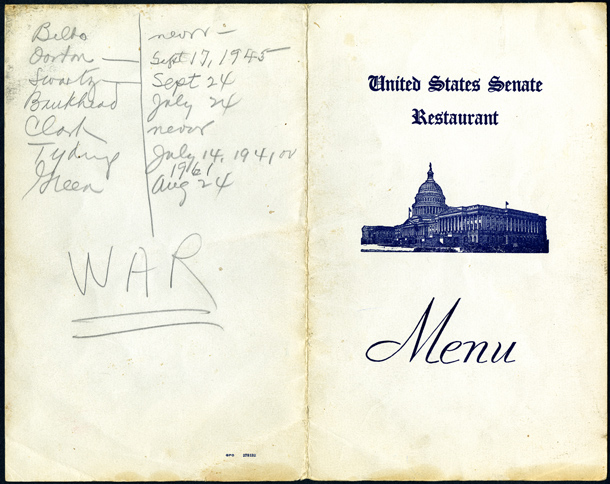 Bilbo never –
Dorton — Sept 17, 1945
Swartz — Sept 24
Bankhead July 24
Clark never
Tydings July 14, 1941, or
1961
Green Aug 24
WAR
GPO
United States Senate
Restaurant
Menu